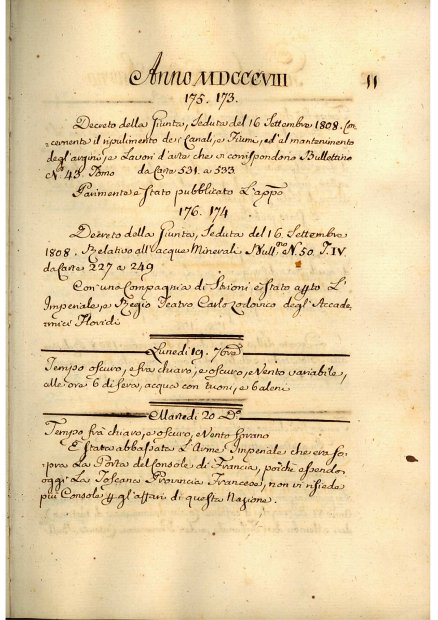 Anno MDCCCVIII
11
175. 173.
Decreto della Giunta, Seduta del 16 Settembre 1808. Con-
cernente il ripulimento de Canali, e Fiumi, ed al mantenimento
degl'argini, e Lavori d'arte che vi corrispondono Bullettino
N.º 43. Tomo da Carte 531. a 533
Parimente è stato pubblicato L'appº
176. 174
Decreto della Giunta, Seduta del 16. Settembre
1808. Relativo all'acque Minerali N. 50 T. IV
da Carte 227 a 249
Con una Compagnia di Istrioni è stato apto L'
Imperiale, e Regio Teatro Carlo Lodovico degl'Accade
mici Floridi
Lunedi 19. 7bre
Tempo oscuro, e frà chiaro, e oscuro, e Vento variabile,
alle ore 6 di sera, acqua con tuoni, e baleni
Martedi 20 Dº
Tempo frà chiaro, e oscuro, e Vento
È stata abbassata L'Arme Imperiale che era so-
pra La Porta del Console di Francia, poiche essendo
oggi La Toscana Provincia Francese, non vi risiede
più Console gl'affari di questa Nazione.